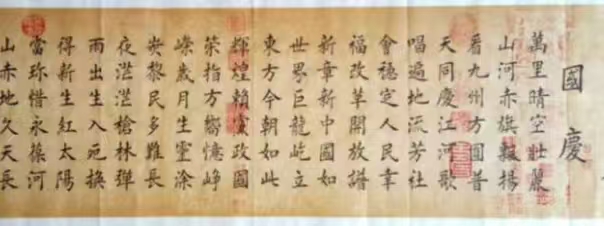 國慶
萬里晴空壯麗
山河赤旗飄揚
看九州方圓普
天同慶江河歌
唱遍地流芳社
會穩定人民幸
福改革開放譜
新章新中國如
世界巨龍屹立
東方今朝如此
輝煌賴黨政國
策指方嚮憶崢
嶸歲月生靈涂
炭黎民多難長
夜茫茫槍林彈
雨出生入死換
得新生紅太陽
當珍惜永葆河
山赤地久天長